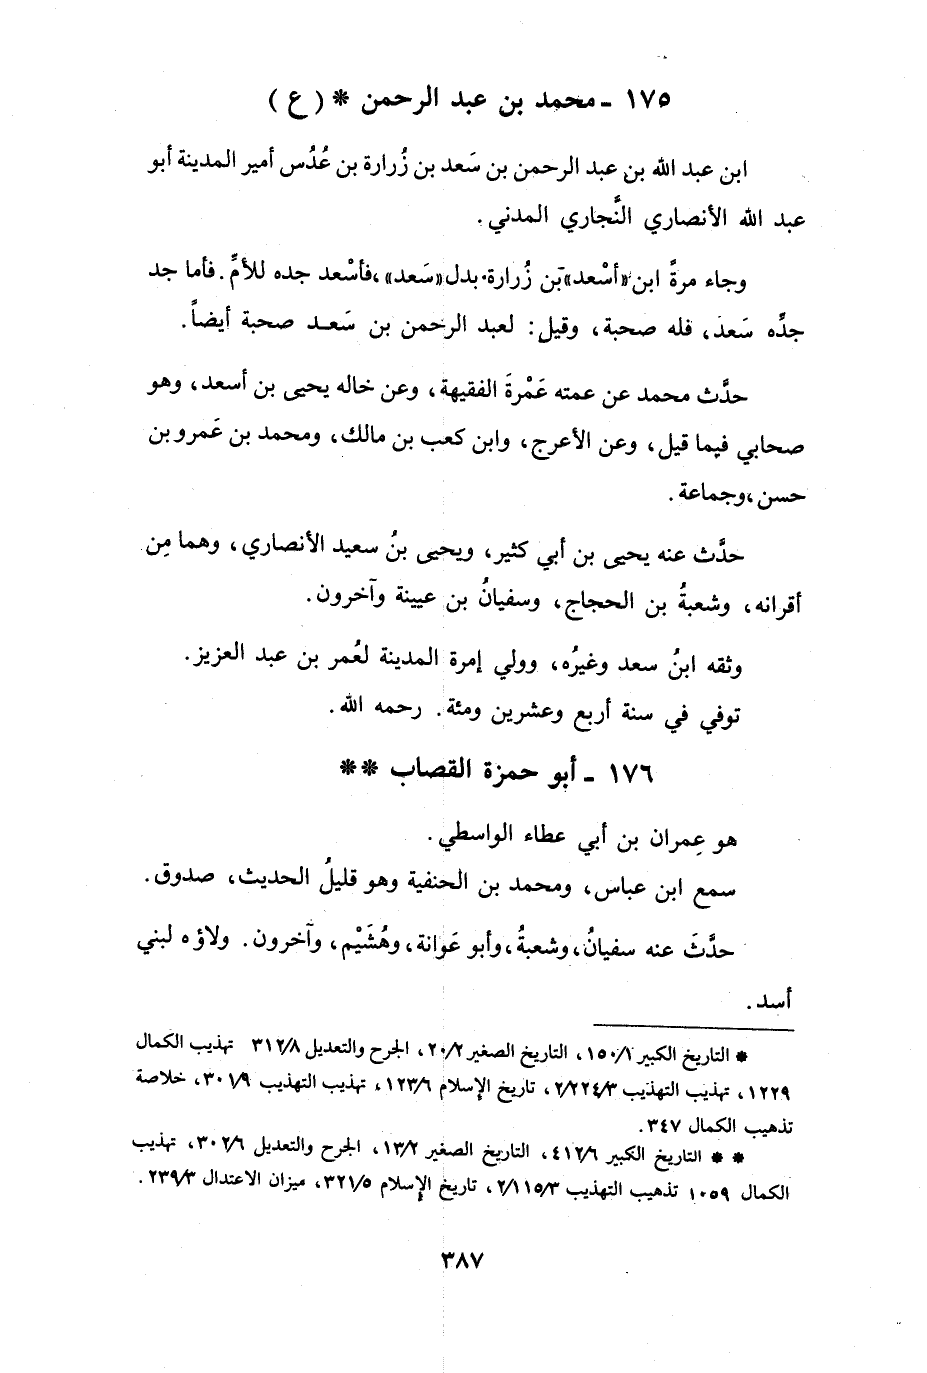 ١٧٥ - محمد بن عبد الرحمن * ( ع )
ابن عبد الله بن عبد الرحمن بن سَعد بن زُرارة بن عُدُس أمير المدينة أبو
عبد الله الأنصاري النَّجاري المدني .
وجاء مرةً ابن «أسْعد» بن زُرارة بدل «سَعد» ، فأسْعد جده للأمِّ . فأما جد
جدِّه سَعد ، فله صحبة ، وقيل : لعبد الرحمن بن سَعد صحبة أيضاً .
حدَّث محمد عن عمته عَمْرةَ الفقيهة ، وعن خاله يحيى بن أسعد ، وهو
صحابي فيما قيل ، وعن الأعرج ، وابن كعب بن مالك ، ومحمد بن عَمرو بن
حسن ، وجماعة .
حدَّث عنه يحيى بن أبي كثير ، ويحيى بنُ سعيد الأنصاري ، وهما مِن
أقرانه ، وشعبةُ بن الحجاج ، وسفيانُ بن عيينة وآخرون .
وثقه ابنُ سعد وغيرُه ، وولي إمرة المدينة لعُمر بن عبد العزيز .
توفي في سنة أربع وعشرين ومئة . رحمه الله .
١٧٦ - أبو حمزة القصاب **
هو عِمران بن أبي عطاء الواسطي .
سمع ابن عباس ، ومحمد بن الحنفية وهو قليلُ الحديث ، صدوق .
حدَّثَ عنه سفيانُ ، وشعبةُ ، وأبو عَوانة ، وهُشَيْم ، وآخرون . ولاؤه لبني
أسد .
* التاريخ الكبير ١٥٠/١ ، التاريخ الصغير ٢٠/٢ ، الجرح والتعديل ٣١٢/٨ تهذيب الكمال
١٢٢٩ ، تهذيب التهذيب ٢/٢٢٤/٣ ، تاريخ الإسلام ١٢٣/٦ ، تهذيب التهذيب ٣٠١/٩ ، خلاصة
تذهيب الكمال ٣٤٧ .
** التاريخ الكبير ٤١٢/٦ ، التاريخ الصغير ١٣/٢ ، الجرح والتعديل ٣٠٢/٦ ، تهذيب
الكمال ١٠٥٩ تذهيب التهذيب ٢/١١٥/٣ ، تاريخ الإسلام ٣٢١/٥ ، ميزان الاعتدال ٢٣٩/٣ .
٣٨٧